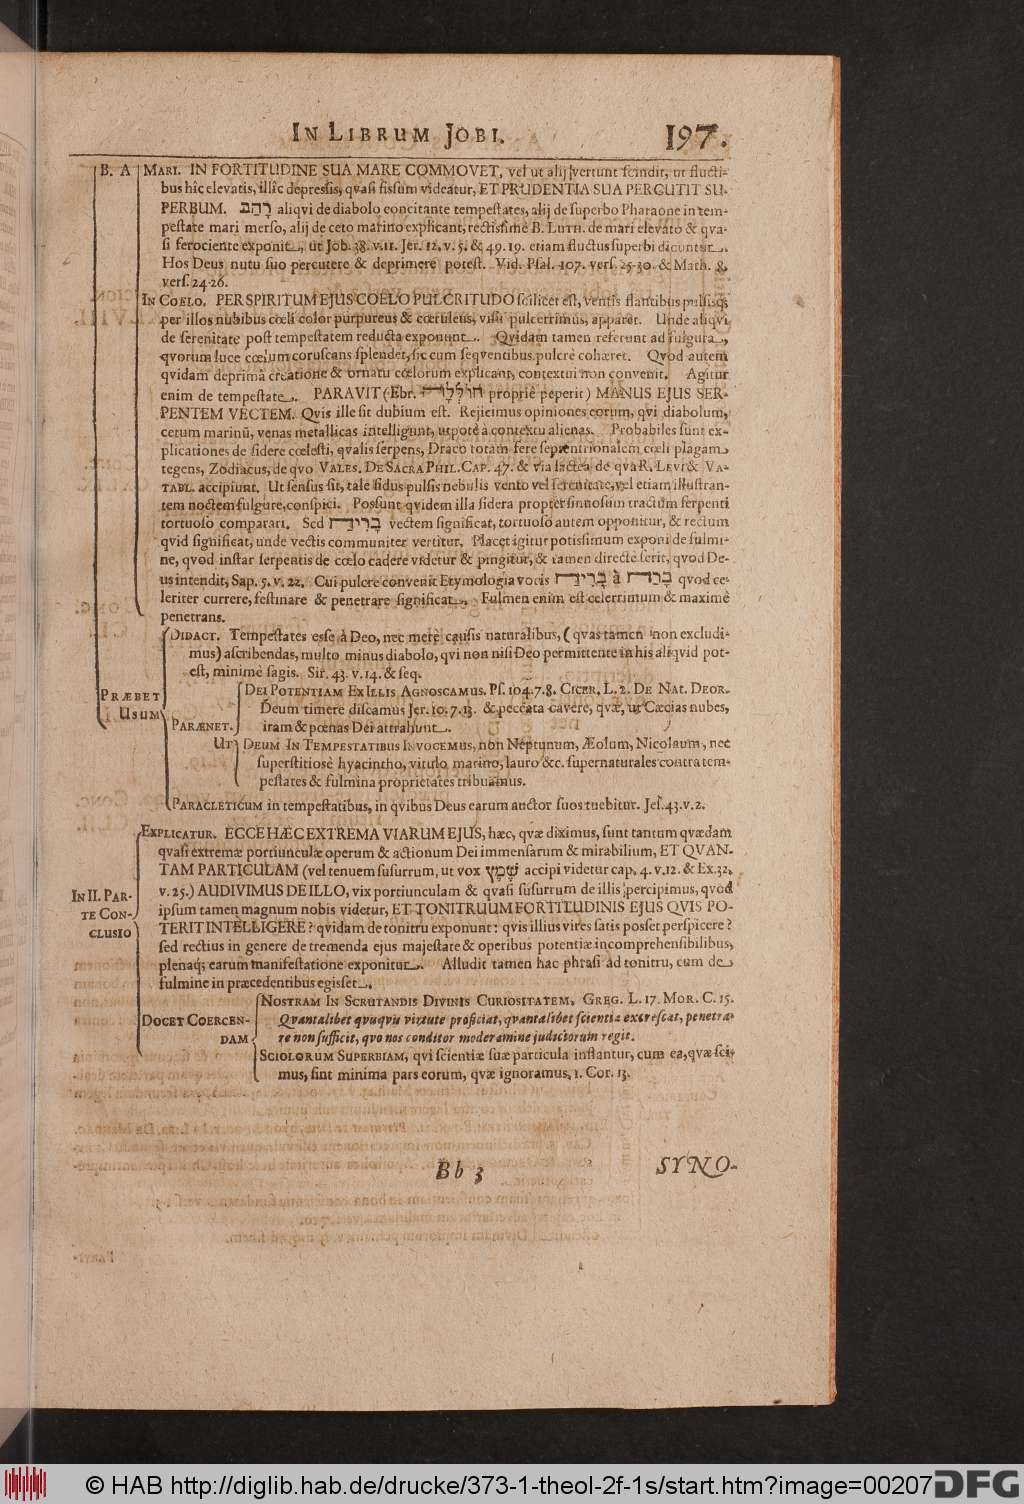 IN LIBRUM JOBI. 197.
B. A MARI. IN FORTITUDINE SUA MARE COMMOVET, vel ut alij vertunt scindit, ut flucti-
bus hic elevatis, illic depressis, qvasi fissum videatur, ET PRUDENTIA SUA PERCUTIT SU-
PERBUM. רָהַב aliqvi de diabolo concitante tempestates, alij de superbo Pharaone in tem-
pestate mari merso, alij de ceto marino explicant, rectissimè B. LUTH. de mari elevato & qva-
si ferociente exponit, ut Job. 38. v. 11. Jer. 12, v. 5. & 49. 19. etiam fluctus superbi dicuntur.
Hos Deus nutu suo percutere & deprimere potest. Vid. Psal. 107. vers. 25-30. & Math. 8,
vers. 24-26.
IN COELO. PER SPIRITUM EJUS COELO PULCRITUDO scilicet est, ventis flantibus pulsisq;
per illos nubibus cœli color purpureus & cœruleus, visu pulcerrimus, apparet. Unde aliqvi
de serenitate post tempestatem reducta exponunt. Qvidam tamen referunt ad fulgura,
qvorum luce cœlum coruscans splendet, sic cum seqventibus pulcrè cohæret. Qvod autem
qvidam deprimâ creatione & ornatu cœlorum explicant, contextui non convenit. Agitur
enim de tempestate. PARAVIT (Ebr. חוֹלְלָה propriè peperit) MANUS EJUS SER-
PENTEM VECTEM. Qvis ille sit dubium est. Rejicimus opiniones eorum, qvi diabolum,
cetum marinū, venas metallicas intelligunt, utpote à contextu alienas. Probabiles sunt ex-
plicationes de sidere cœlesti, qvalis serpens, Draco totam fere septentrionalem cœli plagam
tegens, Zodiacus, de qvo VALES. DE SACRA PHIL. CAP. 47. & via lactea de qva R. LEVI & VA-
TABL. accipiunt. Ut sensus sit, tale sidus pulsis nebulis vento vel serenitate, vel etiam illustran-
tem noctem fulgure, conspici. Possunt qvidem illa sidera propter sinuosum tractum serpenti
tortuoso comparari. Sed בָּרִיחַ vectem significat, tortuoso autem opponitur, & rectum
qvid significat, unde vectis communiter vertitur. Placet igitur potissimum exponi de fulmi-
ne, qvod instar serpentis de cœlo cadere videtur & pingitur, & tamen directe ferit, qvod De-
us intendit, Sap. 5. v. 22. Cui pulcre convenit Etymologia vocis בָּרִיחַ à בָּרַח qvod ce-
leriter currere, festinare & penetrare significat. Fulmen enim est celerrimum & maximè
penetrans.
PRÆBET
USUM
DIDACT. Tempestates esse à Deo, nec merè causis naturalibus, (qvas tamen non excludi-
mus) ascribendas, multo minus diabolo, qvi non nisi Deo permittente in his aliqvid pot-
est, minimè sagis. Sir. 43. v. 14. & seq.
PARÆNET.
UT
DEI POTENTIAM EX ILLIS AGNOSCAMUS. Ps. 104. 7. 8. CICER. L. 2. DE NAT. DEOR.
Deum timere discamus Jer. 10. 7. 13. & peccata cavere, qvæ, ut Cæcias nubes,
iram & pœnas Dei attrahunt.
DEUM IN TEMPESTATIBUS INVOCEMUS, non Neptunum, Æolum, Nicolaum, nec
superstitiosè hyacintho, vitulo marino, lauro &c. supernaturales contra tem-
pestates & fulmina proprietates tribuamus.
PARACLETICUM in tempestatibus, in qvibus Deus earum auctor suos tuebitur. Jes. 43. v. 2.
IN II. PAR-
TE CON-
CLUSIO
EXPLICATUR. ECCE HÆC EXTREMA VIARUM EJUS, hæc, qvæ diximus, sunt tantum qvædam
qvasi extremæ portiunculæ operum & actionum Dei immensarum & mirabilium, ET QVAN-
TAM PARTICULAM (vel tenuem susurrum, ut vox שֶׁמֶץ accipi videtur cap. 4. v. 12. & Ex. 32,
v. 25.) AUDIVIMUS DE ILLO, vix portiunculam & qvasi susurrum de illis percipimus, qvod
ipsum tamen magnum nobis videtur, ET TONITRUUM FORTITUDINIS EJUS QVIS PO-
TERIT INTELLIGERE? qvidam de tonitru exponunt: qvis illius vires satis posset perspicere?
sed rectius in genere de tremenda ejus majestate & operibus potentiæ incomprehensibilibus,
plenaq; earum manifestatione exponitur. Alludit tamen hac phrasi ad tonitru, cum de
fulmine in præcedentibus egisset.
DOCET COERCEN-
DAM
NOSTRAM IN SCRUTANDIS DIVINIS CURIOSITATEM, GREG. L. 17. MOR. C. 15.
Qvantalibet qvisqvis virtute proficiat, qvantalibet scientia excrescat, penetra-
re non sufficit, qvo nos conditor moderamine judiciorum regit.
SCIOLORUM SUPERBIAM, qvi scientiæ suæ particula inflantur, cum ea, qvæ sci-
mus, sint minima pars eorum, qvæ ignoramus, 1. Cor. 13.
Bb 3 SYNO-
© HAB http://diglib.hab.de/drucke/373-1-theol-2f-1s/start.htm?image=00207 DFG